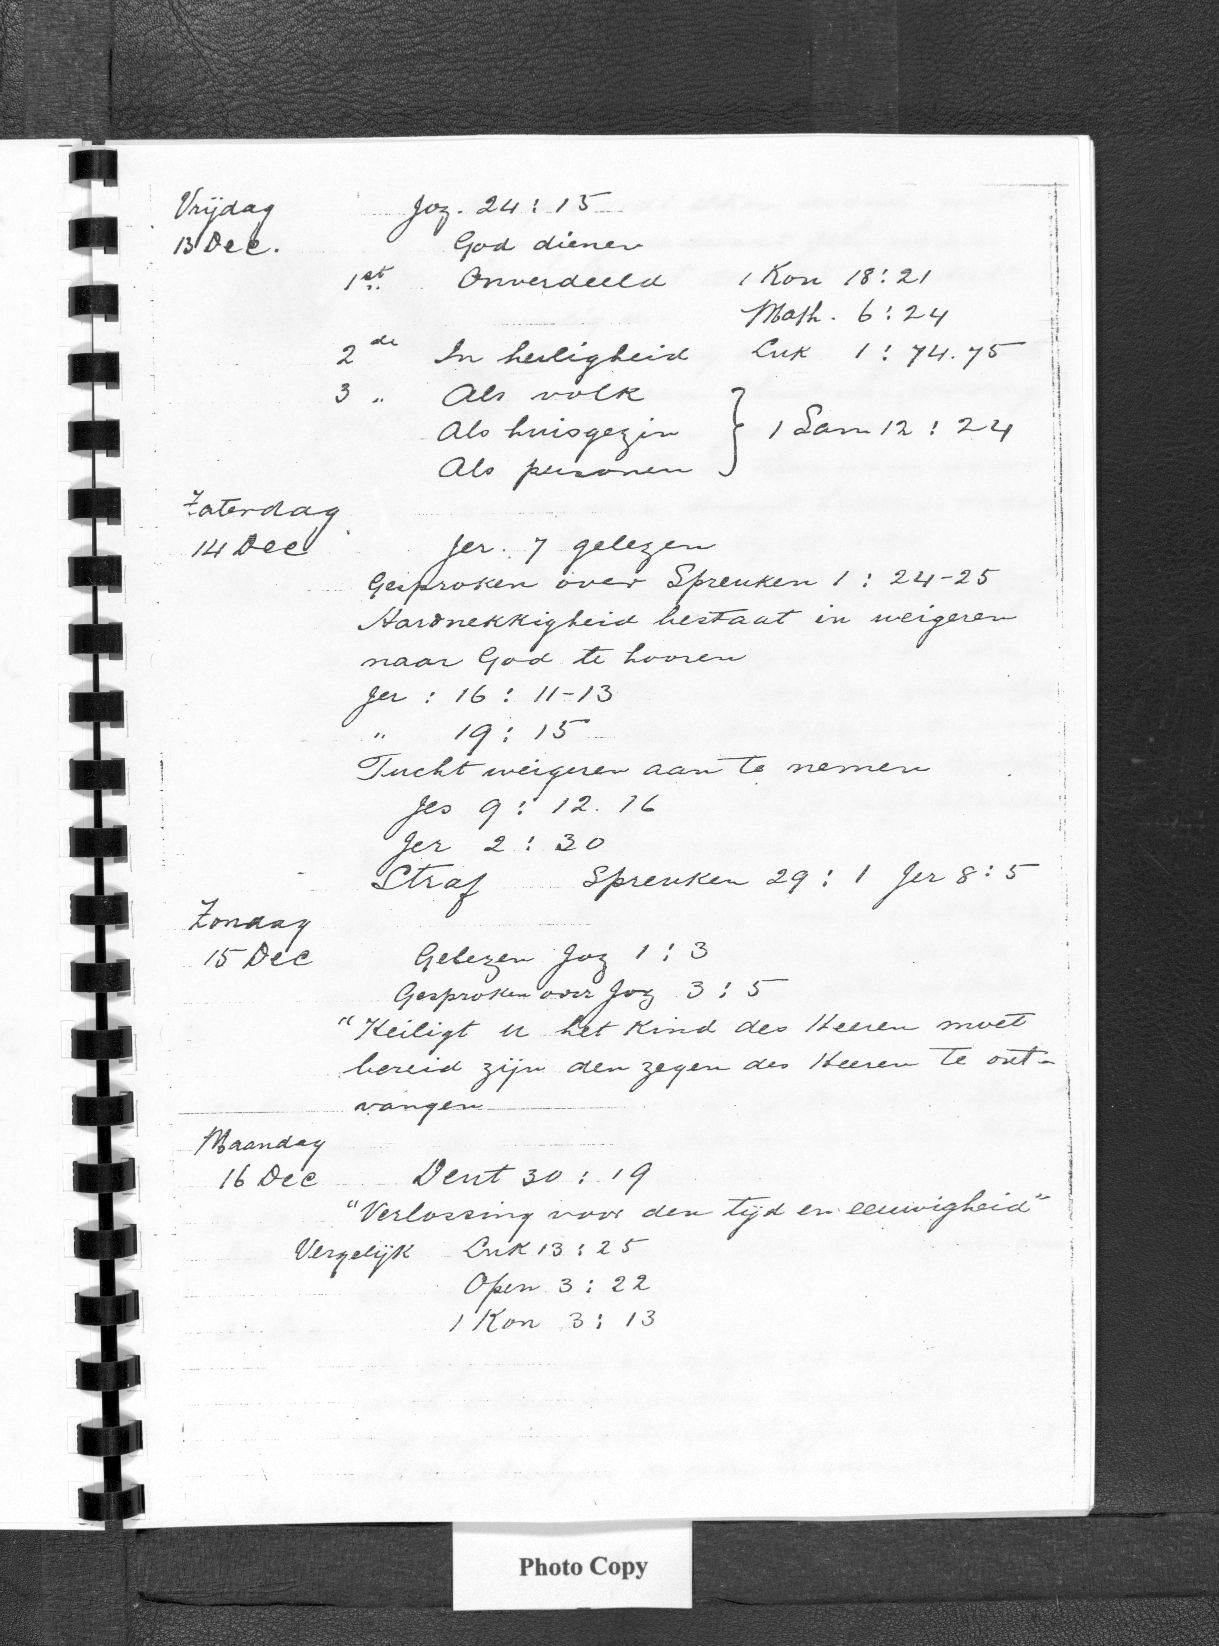 Vrijdag Joz. 24 : 15
13 Dec. God dienen
1st Onverdeeld 1 Kon 18 : 21
Math. 6 : 24
2de In heiligheid Luk 1 : 74. 75
3 " Als volk
Als huisgezin } 1 Sam 12 : 24
Als personen
Zaterdag
14 Dec Jer. 7 gelezen
Gesproken over Spreuken 1 : 24-25
Hardnekkigheid bestaat in weigeren
naar God te hooren
Jer : 16 : 11-13
" 19 : 15
Tucht weigeren aan te nemen
Jes 9 : 12. 16
Jer 2 : 30
Straf Spreuken 29 : 1 Jer 8 : 5
Zondag
15 Dec Gelezen Joz 1 : 3
Gesproken over Joz 3 : 5
"Heiligt u het kind des Heeren moet
bereid zijn den zegen des Heeren te ont-
vangen
Maandag
16 Dec Deut 30 : 19
"Verlossing voor den tijd en eeuwigheid"
Vergelijk Luk 13 : 25
Open 3 : 22
1 Kon 3 : 13
Photo Copy